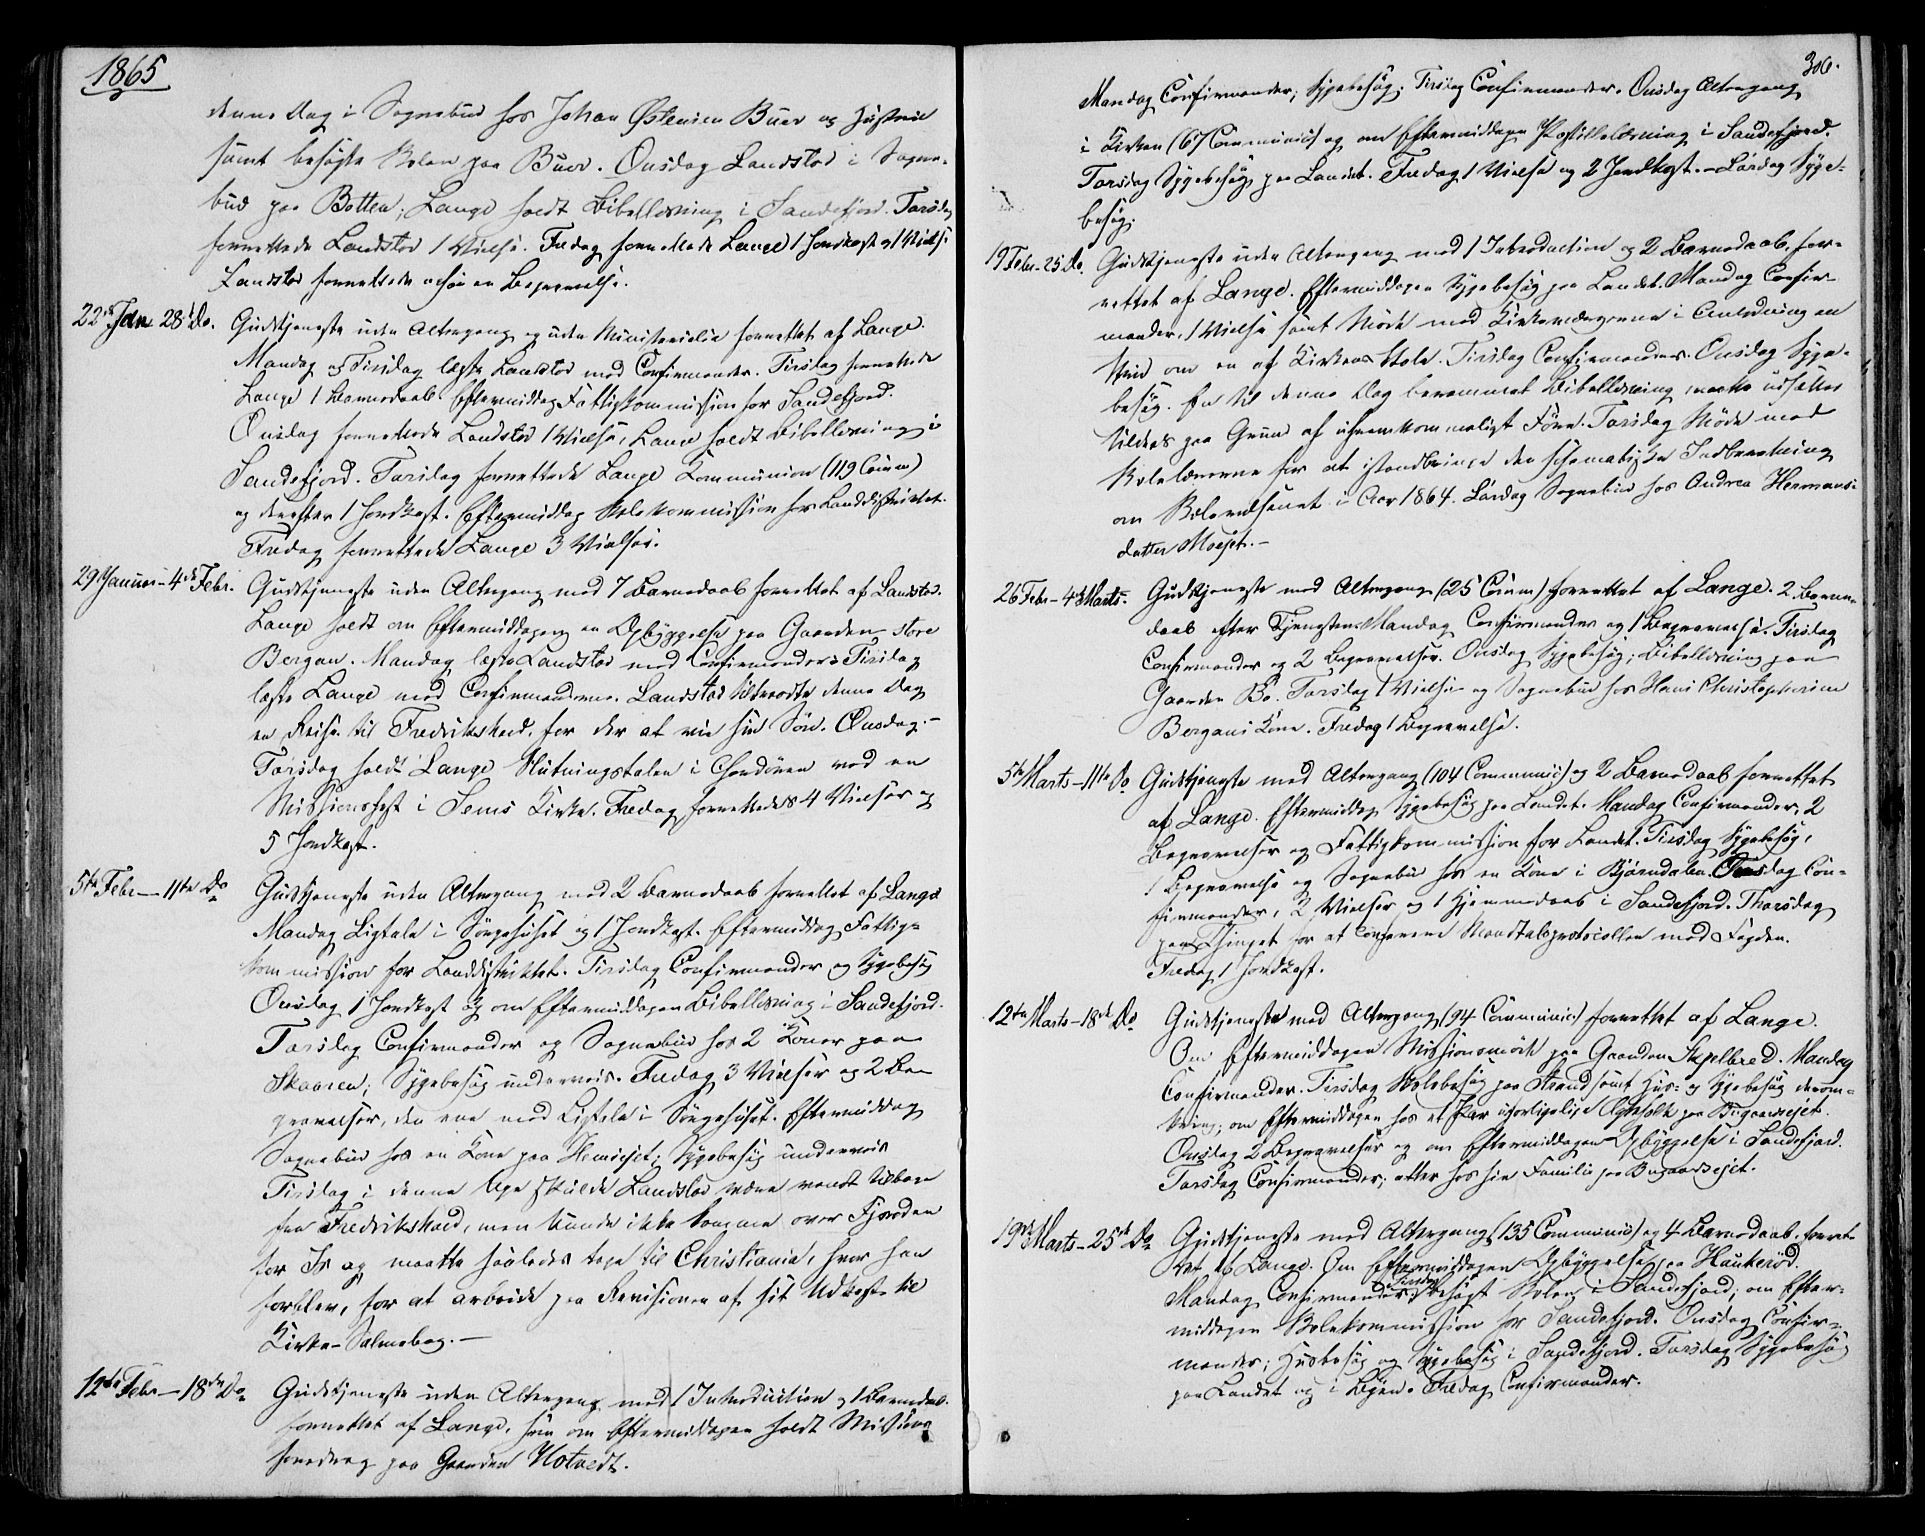 1865
denne Dag i Sognebud hos Johan Østensen Buer og Hustrue
samt besøgte Skolen paa Buer. Onsdag Landstad i Sogne-
bud paa Botten; Lange holdt Bibellæsning i Sandefjord. Torsdag
forrettede Landstad 1 Vielse. Fredag forrettede Lange 1 Jordkast og 1 Vielse
Landstad forrettede ogsaa en Begravelse.
22de Jan 28de Do. Gudstjeneste uden Altergang og uden Ministerialia forrettet af Lange.
Mandag og Tirsdag læste Landstad med Confirmander. Tirsdag forrettede
Lange 1 Barnedaab Eftermiddag Fattigkommission for Sandefjord.
Onsdag forrettede Landstad 1 Vielse, Lange holdt Bibellæsning i
Sandefjord. Torsdag forrettede Lange Kommunion (119 Comm)
og derefter 1 Jordkast. Eftermiddag Skolekommission for Landdistriktet.
Fredag forrettede Lange 3 Vielser.
29 Januar - 4de Febr. Gudstjeneste uden Altergang med 7 Barnedaab forrettet af Landstad.
Lange holdt om Eftermiddagen en Opbyggelse paa Gaarden store
Bergan. Mandag læste Landstad med Confirmander. Tirsdag
læste Lange med Confirmanderne. Landstad tiltraadte denne Dag
en Reise til Frederikshald, for der at vie sin Søn. Onsdag. -
Torsdag holdt Lange Slutningstalen i Chordøren ved en
Missionsfest i Sems Kirke. Fredag forrettedes 4 Vielser og
5 Jordkast.
5te Febr - 11te Do Gudstjeneste uden Altergang med 2 Barnedaab forrettet af Lange
Mandag Ligtale i Sørgehuset og 1 Jordkast. Eftermiddag Fattig-
kommission for Landdistriktet. Tirsdag Confirmander og Sygebesøg
Onsdag 1 Jordkast og om Eftermiddagen Bibellæsning i Sandefjord.
Torsdag Confirmander og Sognebud hos 2 Koner paa
Skaaren; Sygebesøg underveis. Fredag 3 Vielser og 2 Be-
gravelser, den ene med Ligtale i Sørgehuset. Eftermiddag
Sognebud hos en Kone paa; Sygebesøg underveis
Tirsdag i denne Uge skulde Landstad være vendt tilbage
fra Frederikshald, men kunde ikke komme over Fjorden
for Is og maatte saaledes tage til Christiania, hvor han
forblev, for at arbeide paa Revisionen af sit Udkast til
Kirke-Salmebog. -
12te Febr - 18de Do Gudstjeneste uden Altergang med 1 Introduction og 1 Barnedaab.
forrettet af Lange, som om Eftermiddagen holdt Missions
foredrag paa Gaarden Hotvedt.
306.
Mandag Confirmander; Sygebesøg; Tirsdag Confirmander. Onsdag Altergang
i Kirken (67 Communic) og om Eftermiddagen Postillelæsning i Sandefjord.
Torsdag Sygebesøg paa Landet. Fredag 1 Vielse og 2 Jordkast. - Lørdag Syge-
besøg.
19 Febr - 25 Do. Gudstjeneste uden Altergang med 1 Introduction og 2 Barnedaab, for-
rettet af Lange. Eftermiddagen Sygebesøg paa Landet. Mandag Confir-
mander, 1 Vielse samt Møde med Kirkeværgerne i Anledning en
Strid om en af Kirkens Stole. Tirsdag Confirmander. Onsdag Syge-
besøg. En til denne Dag berammet Bibellæsning maatte udsættes
tildels paa Grund af ufremkommeligt Føre. Torsdag Møde med
Skolelærerne for at istandbringe den schematiske Indberetning
om Skolevæsenet i Aar 1864. Lørdag Sognebud hos Andrea Hermans-
datter Moejet. -
26 Febr - 4de Marts. Gudstjeneste med Altergang (25 Comm) forrettet af Lange. 2 Barne-
daab efter Tjenesten. Mandag Confirmander og 1 Begravelse. Tirsdag
Confirmander og 2 Begravelser. Onsdag Sygebesøg; Bibellæsning paa
Gaarden Bo. Torsdag 1 Vielse og Sognebud hos Hans Christophersen
Bergans Kone. Fredag 1 Begravelse.
5te Marts - 11te Do Gudstjeneste med Altergang (104 Communic) og 2 Barnedaab forrettet
af Lange. Eftermiddag Sygebesøg paa Landet. Mandag Confirmander, 2
Begravelser og Fattigkommission for Landet. Tirsdag Sygebesøg,
1 Begravelse og Sognebud hos en Kone i Bjørndalen. Onsdag Con-
firmander, 2 Vielser og 1 Hjemmedaab i Sandefjord. Thorsdag
paa Thinget for at conferere Mandtalsprotocollen med Fogden.
Fredag 1 Jordkast.
12te Marts - 18de Do Gudstjeneste med Altergang (94 Communic) forrettet af Lange.
Om Eftermiddagen Missionsmøde paa Gaarden Skjelbred. Mandag
Confirmander. Tirsdag Skolebesøg paa Strand samt Hus- og Sygebesøg derom-
kring; om Eftermiddagen hos et Par uforligelige Ægtefolk paa Bugaardsejet.
Onsdag 2 Begravelser og om Eftermiddagen Opbyggelse i Sandefjord.
Torsdag Confirmander; atter hos hin Familie paa Bugaardsejet.
19de Marts - 25de Do Gudstjeneste med Altergang (135 Communic) og 4 Barnedaab, forret-
tet af Lange. Om Eftermiddagen Opbyggelse paa Haukerød.
Mandag Confirmander; Tirsdag besøgt Skolen i Sandefjord; om Efter-
middagen Skolekommission for Sandefjord. Onsdag Confir-
mander; Husbesøg og Sygebesøg i Sandefjord. Torsdag Sygebesøg
paa Landet og i Byen. Fredag Confirmander.